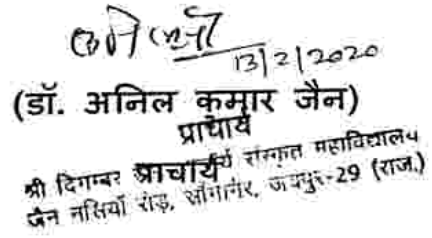 13/2/2020
(डॉ. अनिल कुमार जैन)
प्राचार्य
श्री दिगम्बर प्राचार्य संस्कृत महाविद्यालय
जैन नसियाँ रोड़, सांगानेर, जयपुर-29 (राज.)